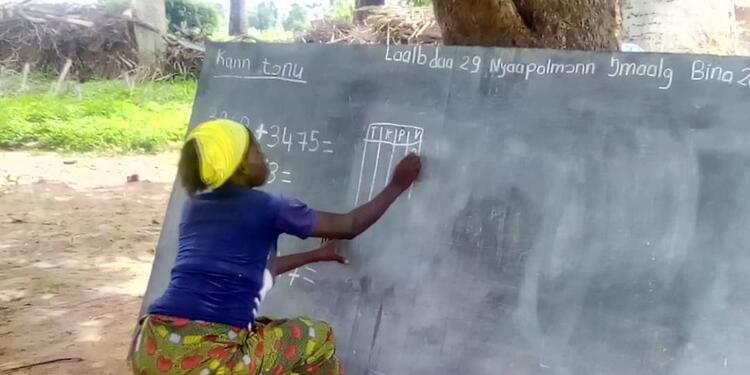 Kann tɔnu
Laalbdaa 29 Nyaapolmɔnn Ŋmaalg Bina 2
+3475=
3=
T K P N
7=